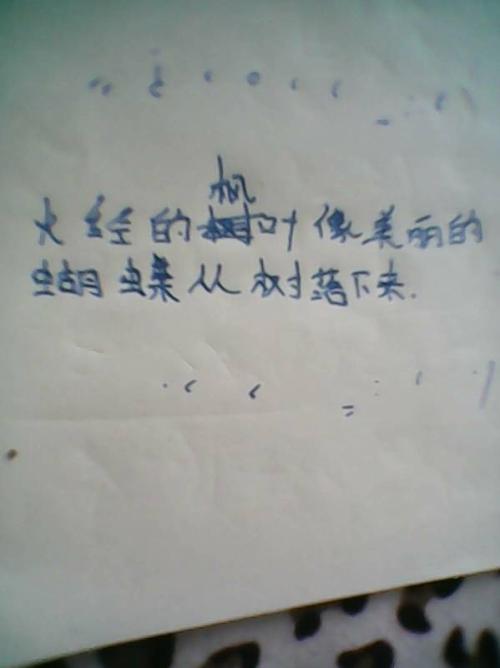 火经的枫叶像美丽的
蝴蝶从树落下来.